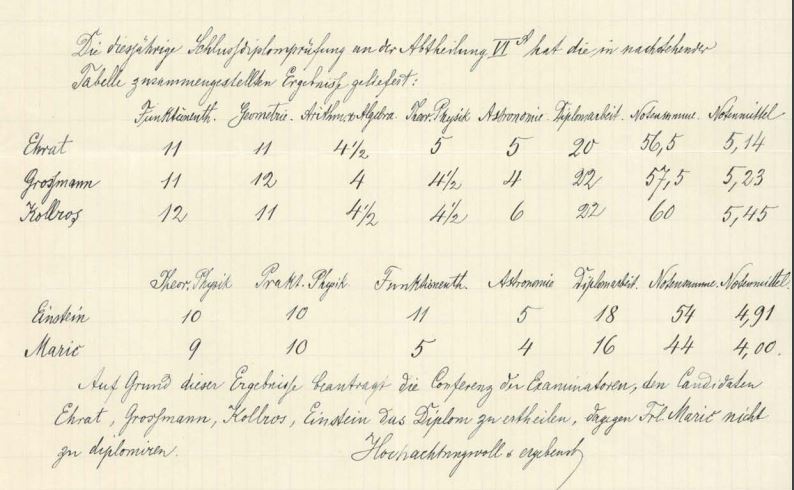 Die diesjährige Schlussdiplomprüfung an der Abtheilung VI A hat die in nachstehender
Tabelle zusammengestellten Ergebnisse geliefert:
Funktionenth. Geometrie. Arithm. u. Algebra. Theor. Physik Astronomie. Diplomarbeit. Notensumme. Notenmittel
Ehrat 11 11 4 1/2 5 5 20 56,5 5,14
Grossmann 11 12 4 4 1/2 4 22 57,5 5,23
Kollros 12 11 4 1/2 4 1/2 6 22 60 5,45
Theor. Physik Prakt. Physik Funktionenth. Astronomie Diplomarbeit. Notensumme. Notenmittel.
Einstein 10 10 11 5 18 54 4,91
Maric 9 10 5 4 16 44 4,00.
Auf Grund dieser Ergebnisse beantragt die Conferenz der Examinatoren, den Candidaten
Ehrat, Grossmann, Kollros, Einstein das Diplom zu ertheilen, dagegen Frl. Maric nicht
zu diplomiren. Hochachtungsvoll & ergebenst